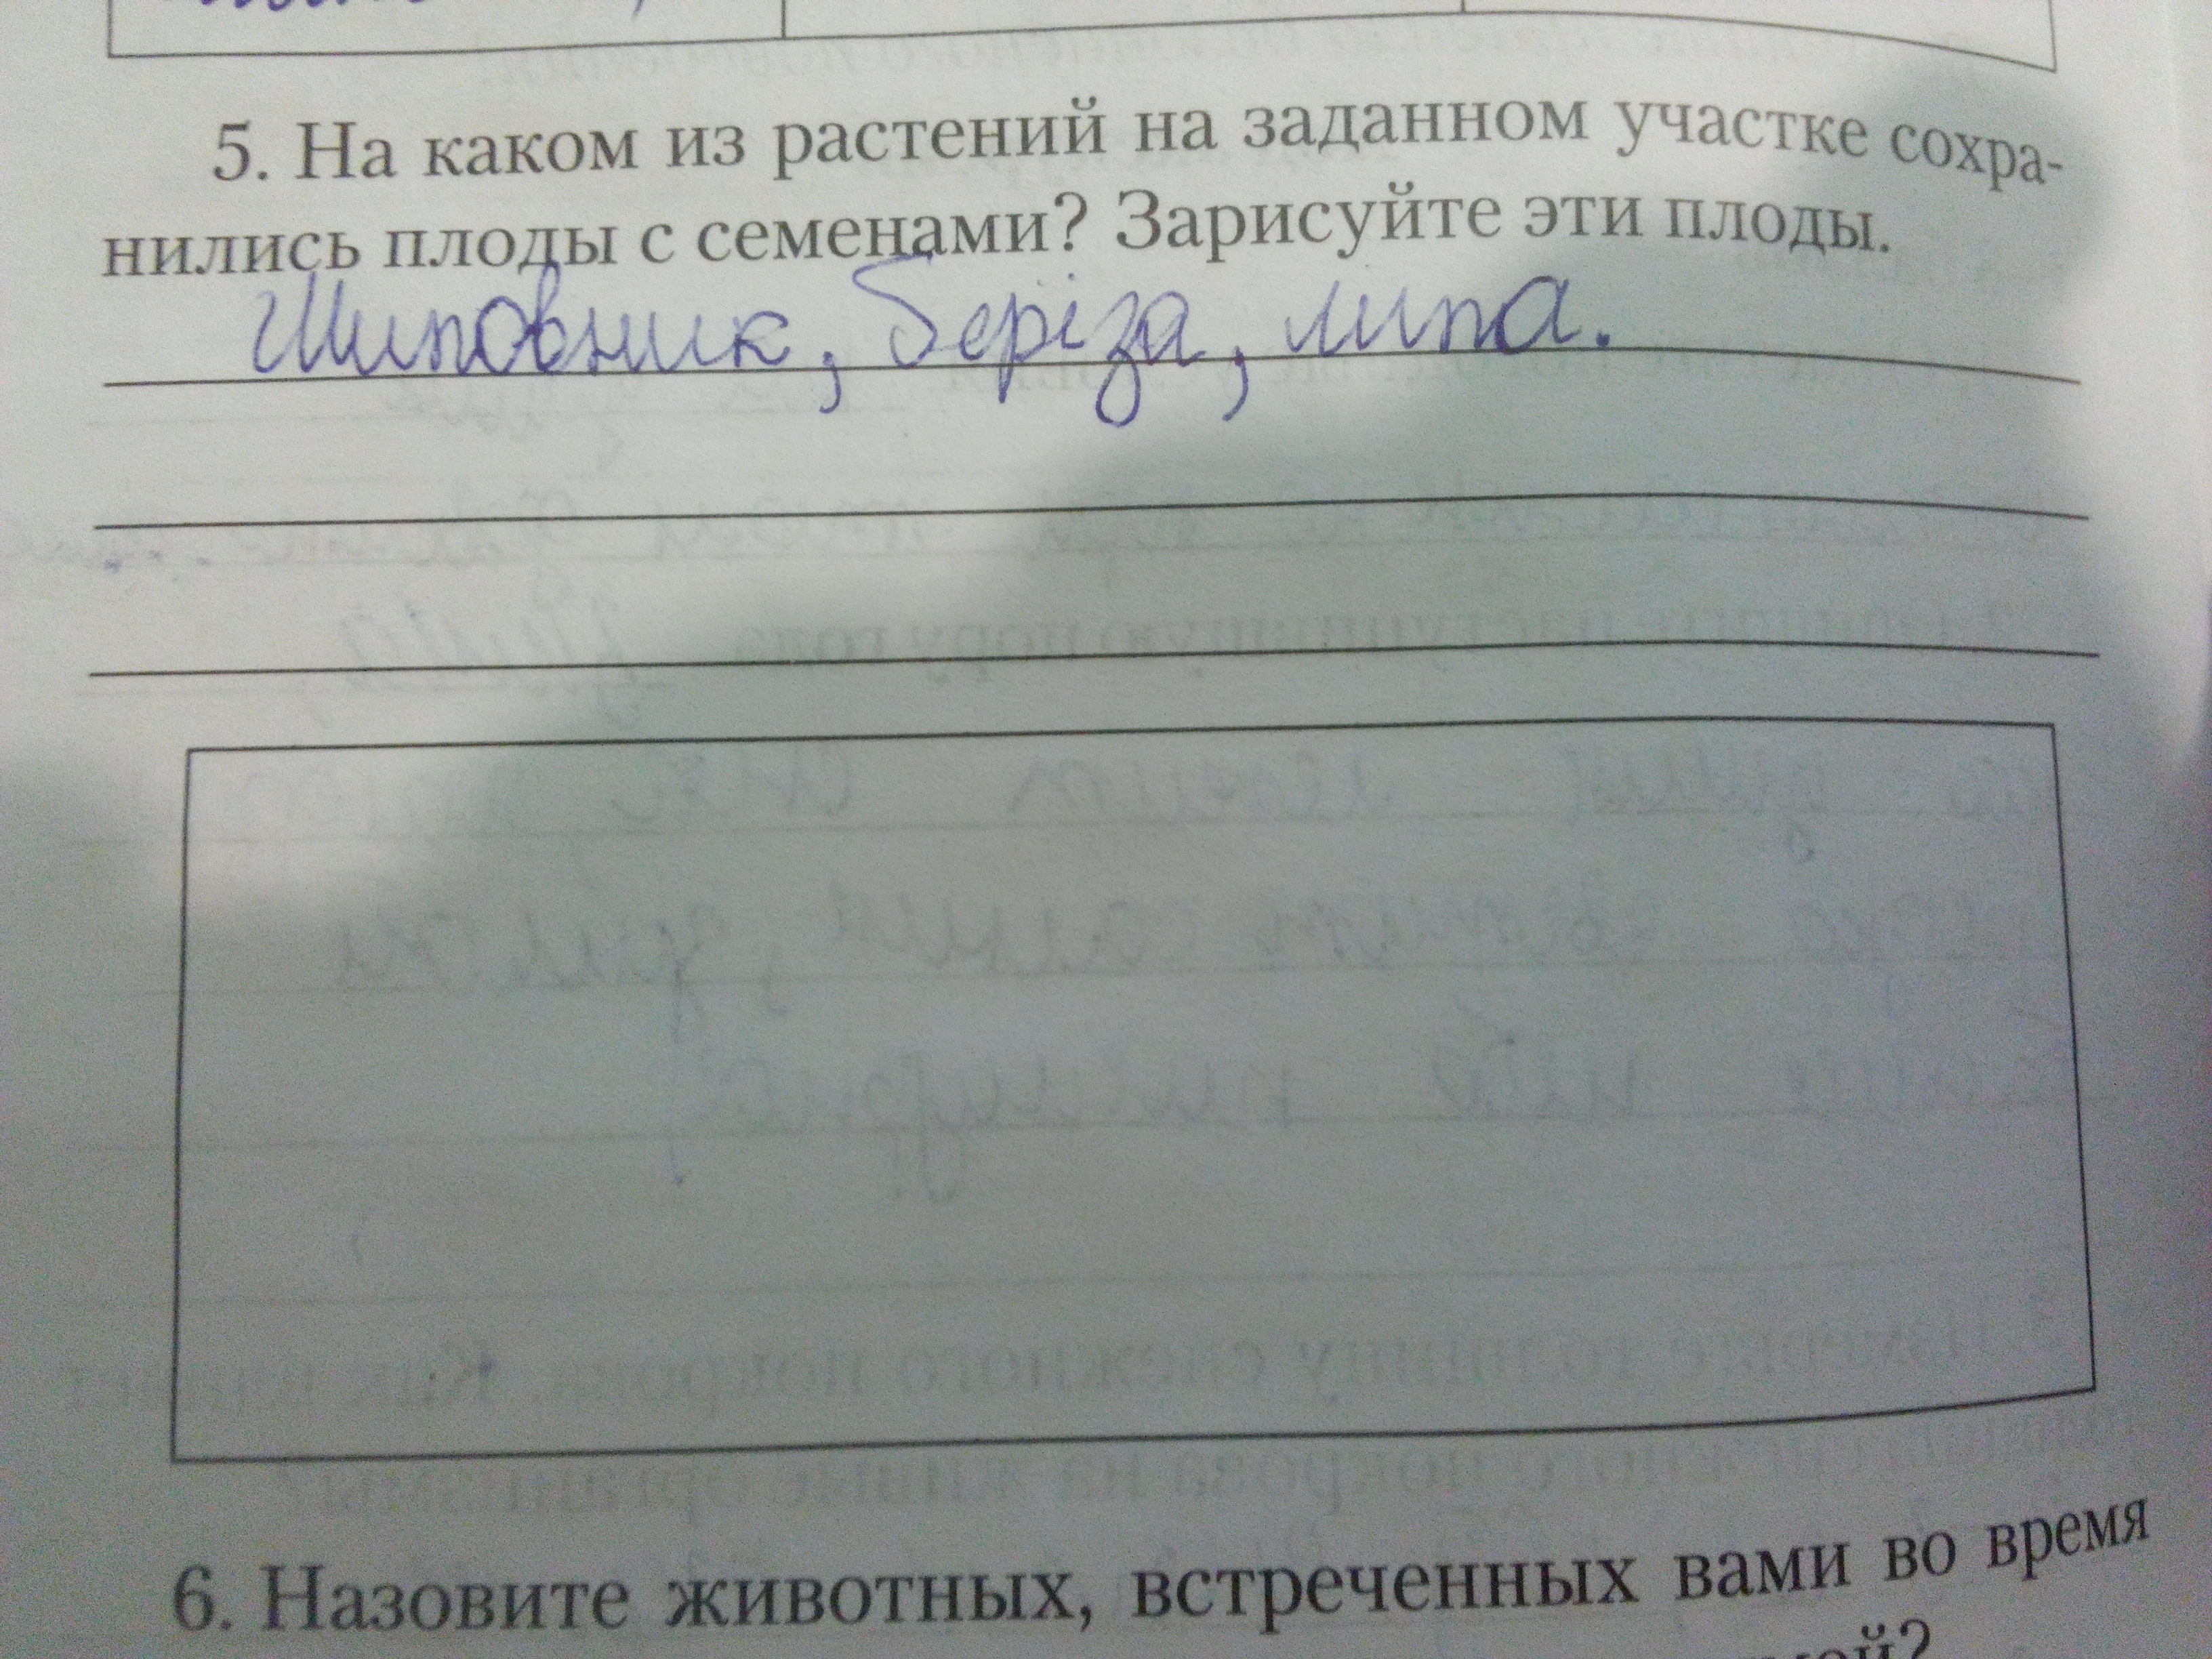 5. На каком из растений на заданном участке сохра-
нились плоды с семенами? Зарисуйте эти плоды.
Шиповник, беріза, липа.
6. Назовите животных, встреченных вами во время